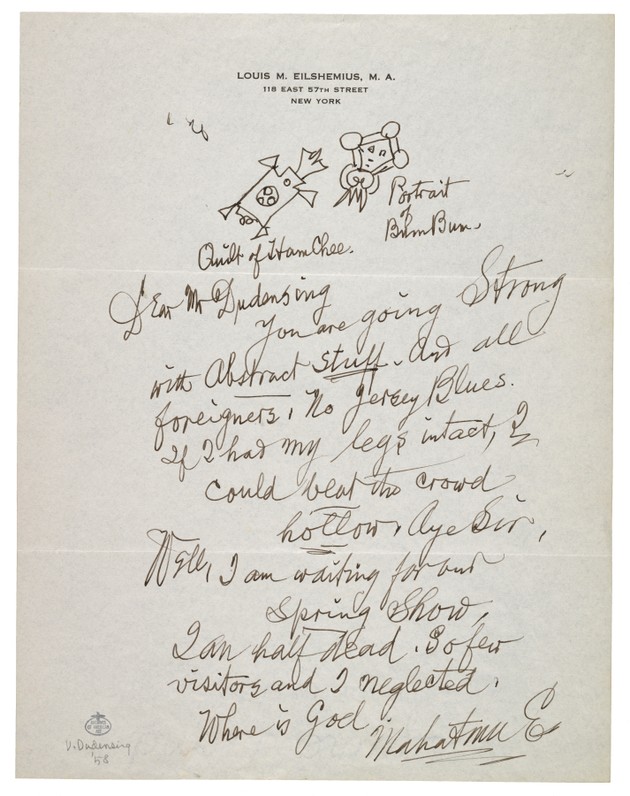 LOUIS M. EILSHEMIUS, M. A.
118 EAST 57TH STREET
NEW YORK
Portrait
of
BumBum.
Quilt of HamChee.
Dear Mr Dudensing
You are going Strong
with Abstract stuff. And all
foreigners, No Jersey Blues.
If I had my legs intact, I
could beat the crowd
hollow. Aye Sir,
Well, I am waiting for our
Spring Show,
I am half dead. So few
visitors and I neglected.
Where is God
Mahatma E
V. Dudensing
58